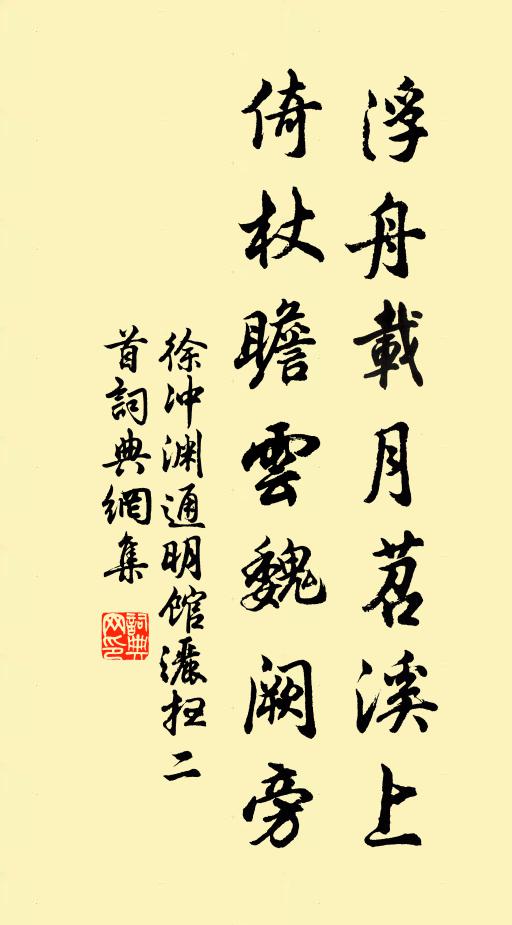 浮舟載月苕溪上
倚杖瞻雲魏闕旁
徐沖渊通明館灑扫二
首詞典網集
詞典
网印